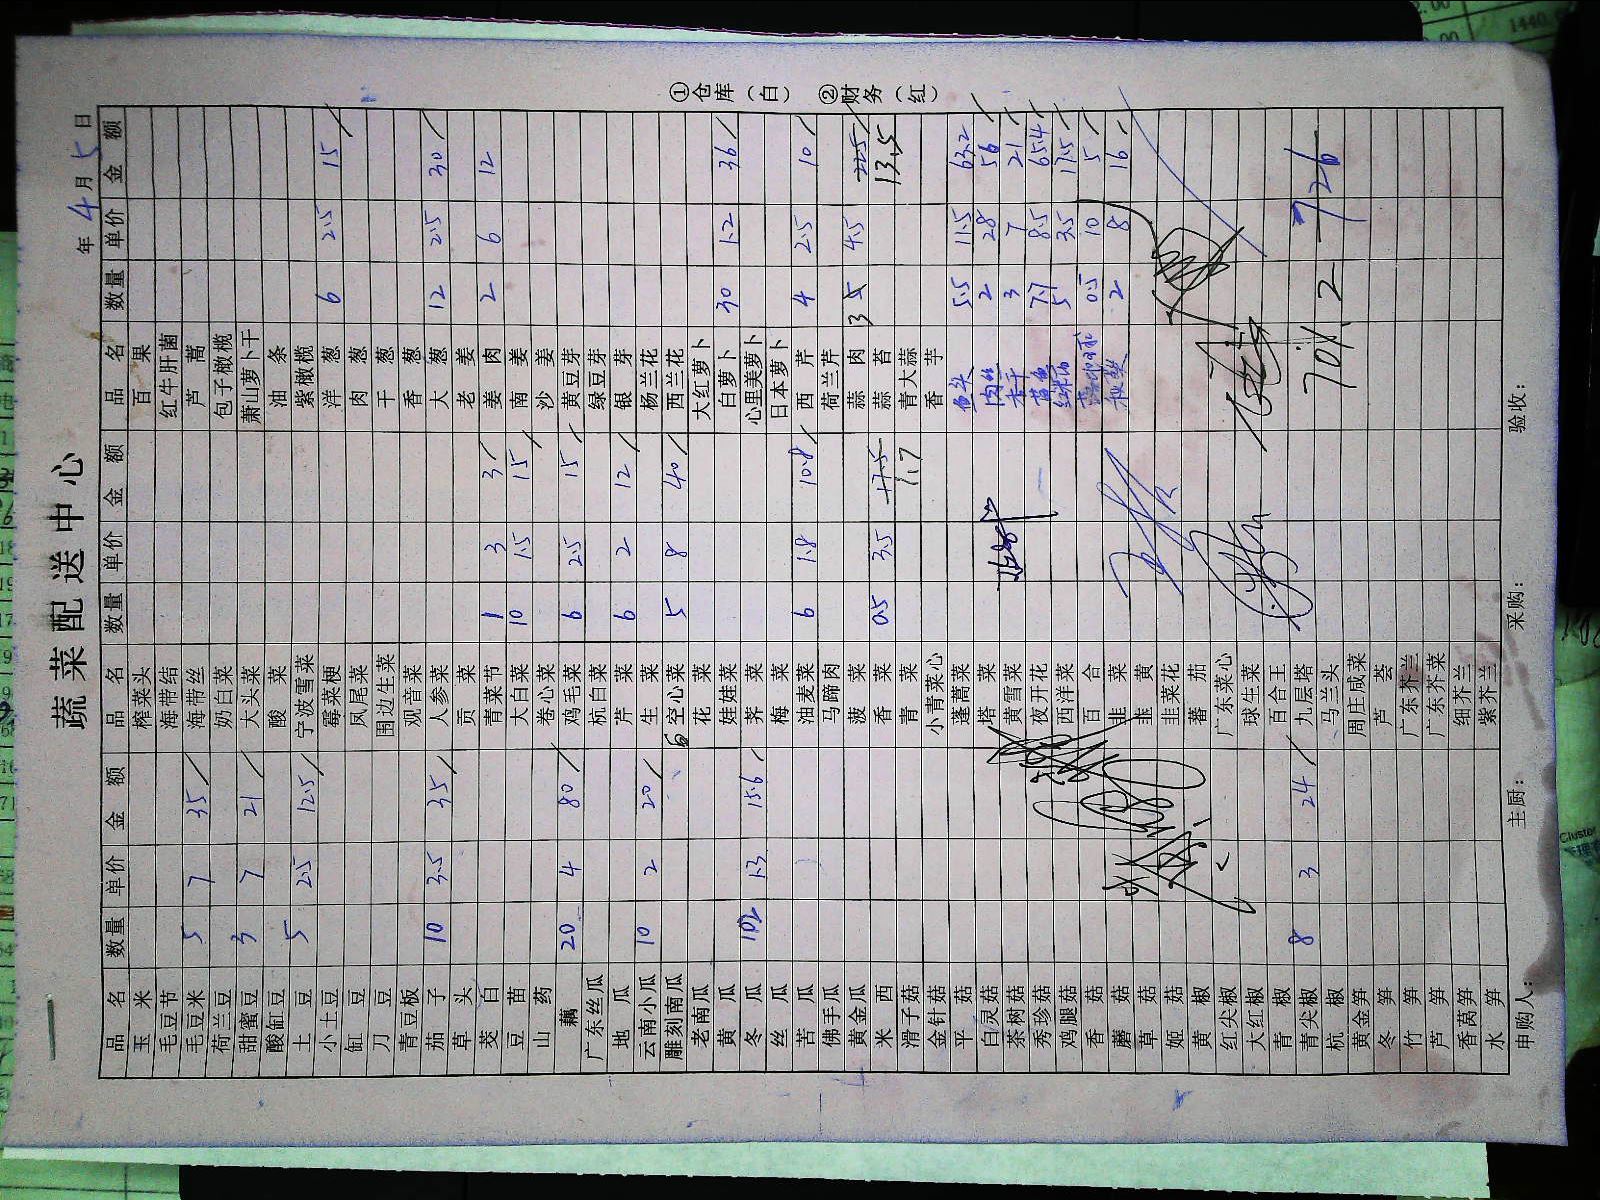 蔬菜配送中心
年 4 月 5 日
品名 数量 单价 金额 品名 数量 单价 金额 品名 数量 单价 金额
玉米 榨菜头 百果
毛豆节 海带结 红牛肝菌
毛豆米 5 7 35 海带丝 芦蒿
荷兰豆 奶白菜 包子橄榄
甜蜜豆 3 7 21 大头菜 萧山萝卜干
酸缸豆 酸菜 油条
土豆 5 2.5 12.5 宁波雪菜 紫橄榄
小土豆 霉菜梗 洋葱 6 2.5 15
缸豆 凤尾菜 肉葱
刀豆 围边生菜 干葱
青豆板 观音菜 香葱
茄子 10 3.5 35 人参菜 大葱 12 2.5 30
草头 贡菜 老姜
茭白 青菜节 1 3 3 姜肉 2 6 12
豆苗 大白菜 10 1.5 15 南姜
山药 卷心菜 沙姜
藕 20 4 80 鸡毛菜 6 2.5 15 黄豆芽
广东丝瓜 杭白菜 绿豆芽
地瓜 芹菜 6 2 12 银芽
云南小瓜 10 2 20 生菜 杨兰花
雕刻南瓜 空心菜 5 8 40 西兰花
老南瓜 花菜 大红萝卜
黄瓜 娃娃菜 白萝卜 30 1.2 36
冬瓜 12 1.3 15.6 荠菜 心里美萝卜
丝瓜 梅菜 日本萝卜
苦瓜 油麦菜 6 1.8 10.8 西芹 4 2.5 10
佛手瓜 马蹄肉 荷兰芹
黄金瓜 菠菜 蒜肉 3 4.5 22.5
米西 香菜 0.5 3.5 17.5 蒜苔 13.5
滑子菇 青菜 1.7 青大蒜
金针菇 小青菜心 香芋
平菇 蓬蒿菜 鱼头 5.5 11.5 63.2
白灵菇 塔菜 肉丝 2 28 56
茶树菇 黄雪菜 香干 3 7 21
秀珍菇 夜开花 黄鱼 7.7 8.5 65.4
鸡腿菇 西洋菜 5 3.5 17.5
香菇 百合 0.5 10 5
蘑菇 韭菜 秋葵 2 8 16
草菇 韭黄
姬菇 韭菜花
黄椒 蕃茄
红尖椒 广东菜心
大红椒 球生菜
青椒 百合王
青尖椒 8 3 24 九层塔 701.2 726
杭椒 马兰头
黄金笋 周庄咸菜
冬笋 芦荟
竹笋 广东芥兰
芦笋 广东芥菜
香莴笋 细芥兰
水笋 紫芥兰
申购人： 主厨： 采购： 验收：
①仓库（白） ②财务（红）